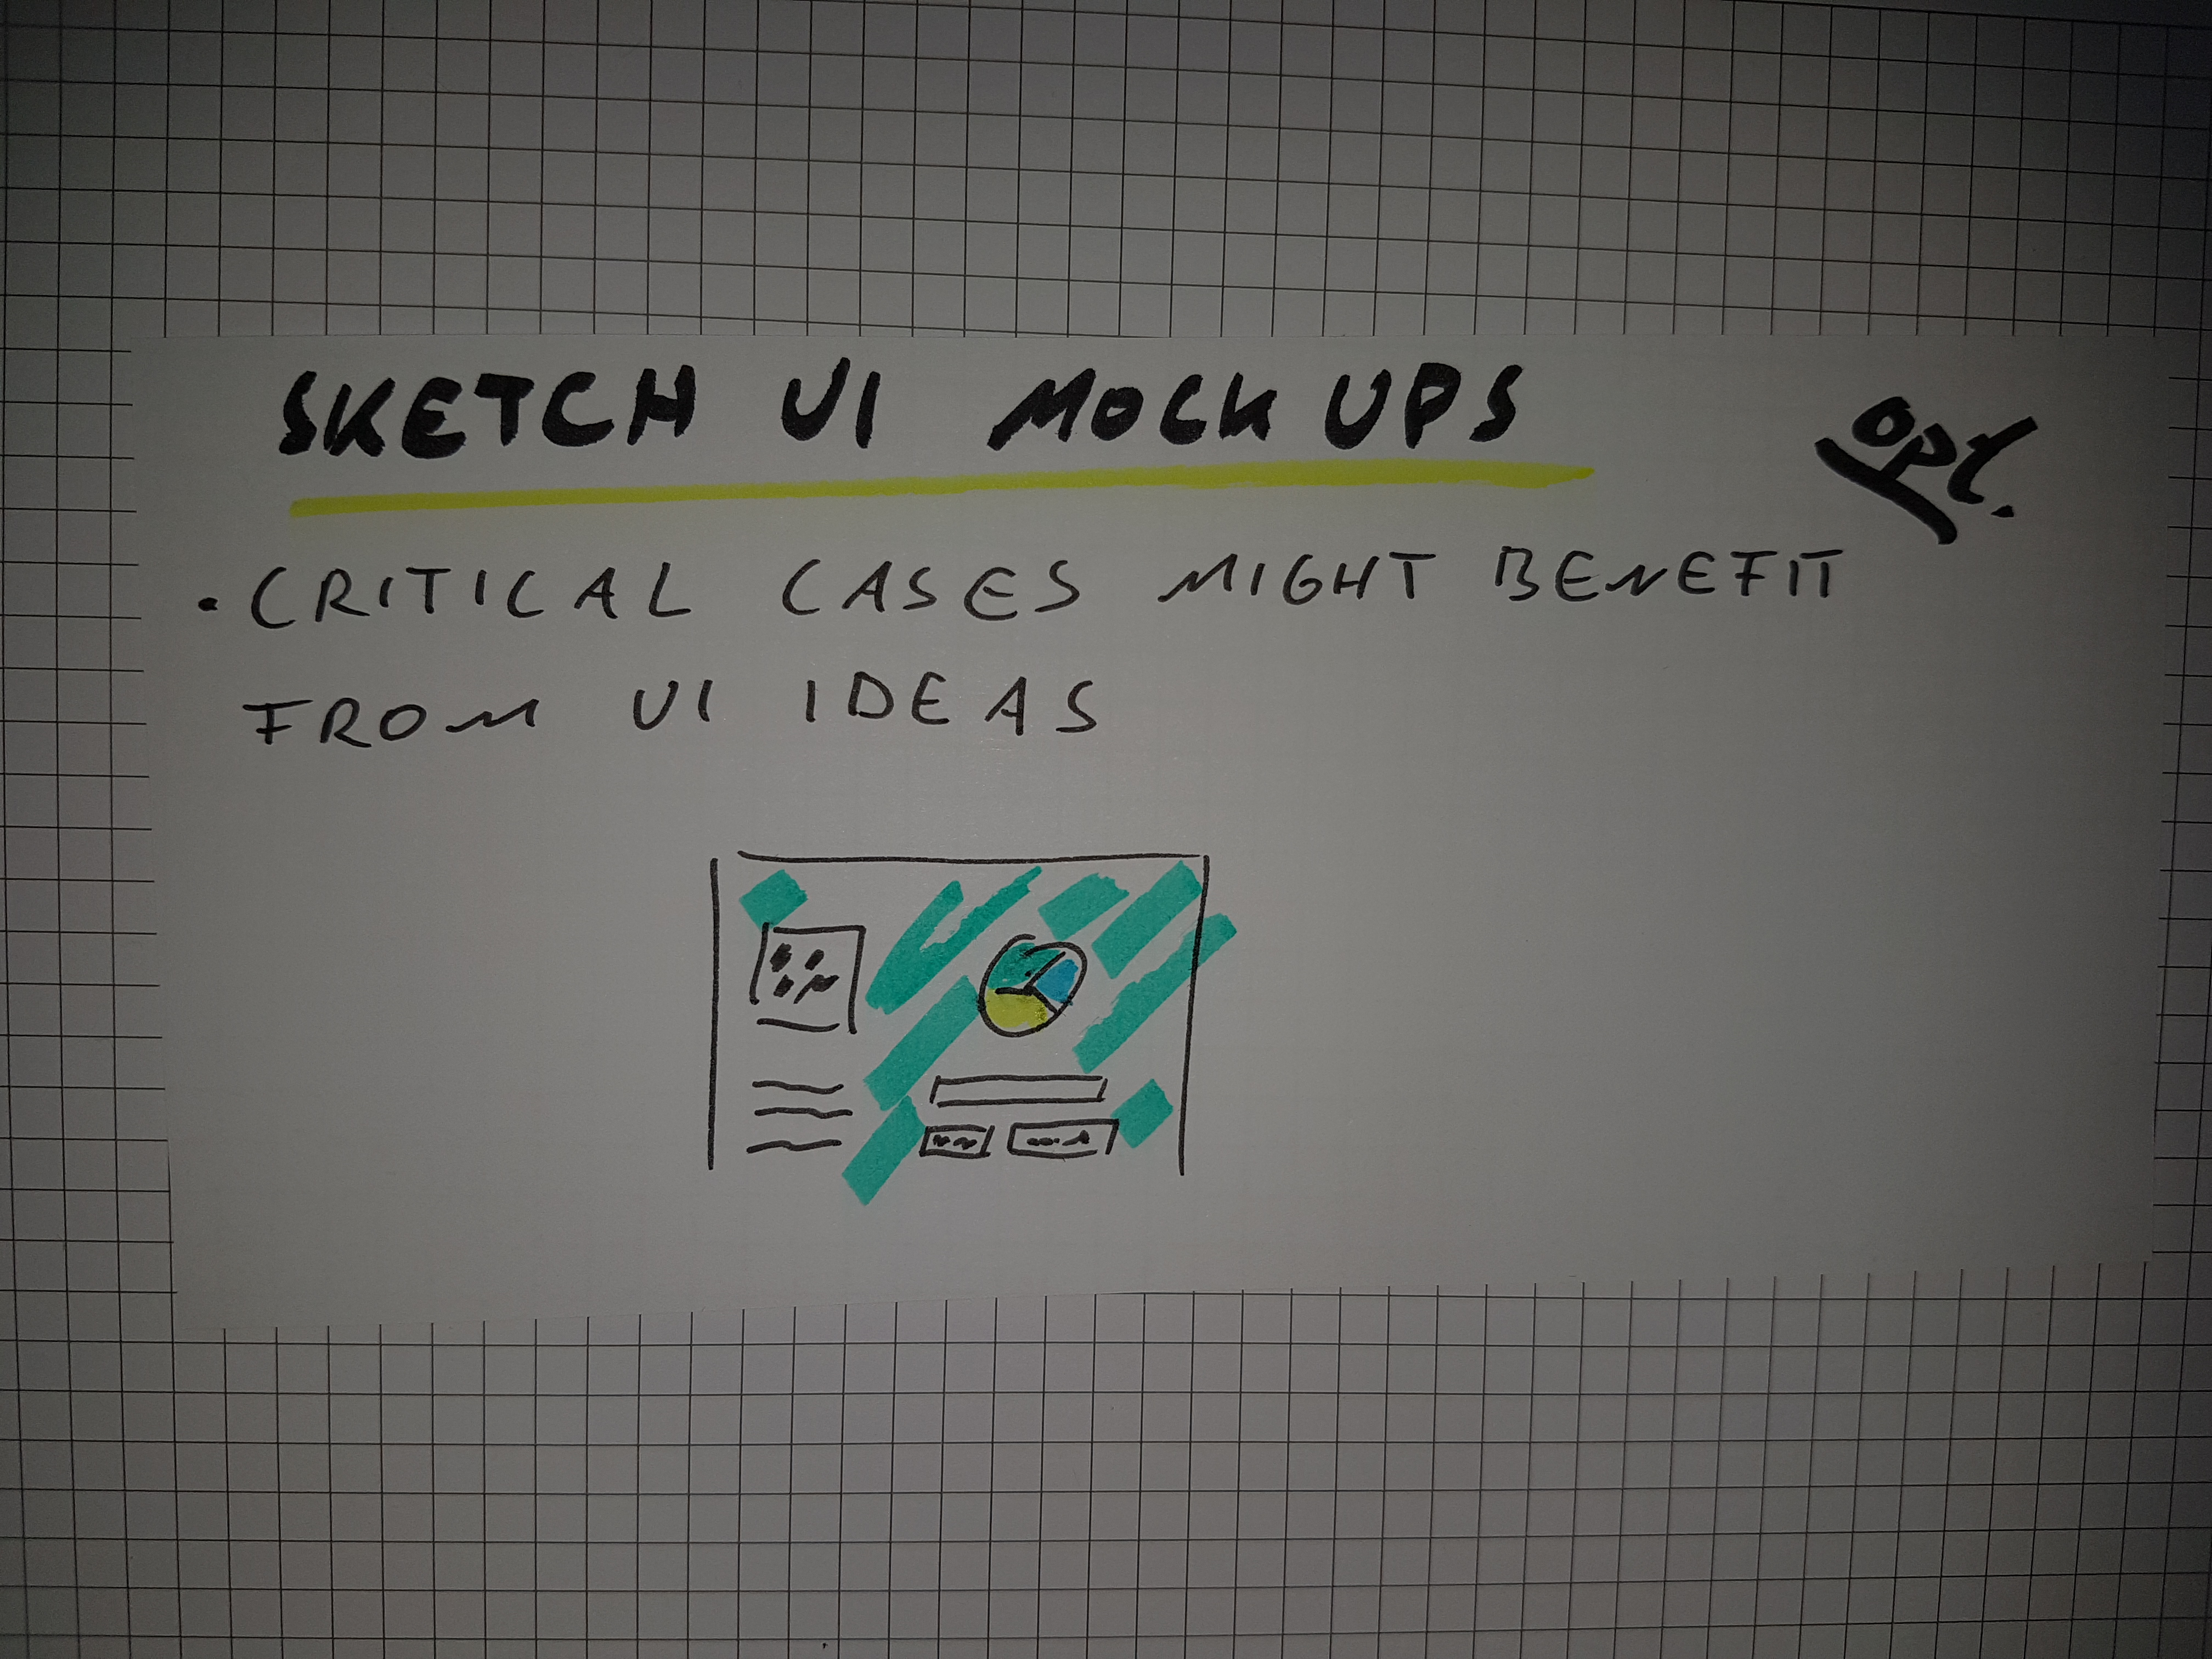 SKETCH UI MOCK UPS
OPT.
• CRITICAL CASES MIGHT BENEFIT
FROM UI IDEAS